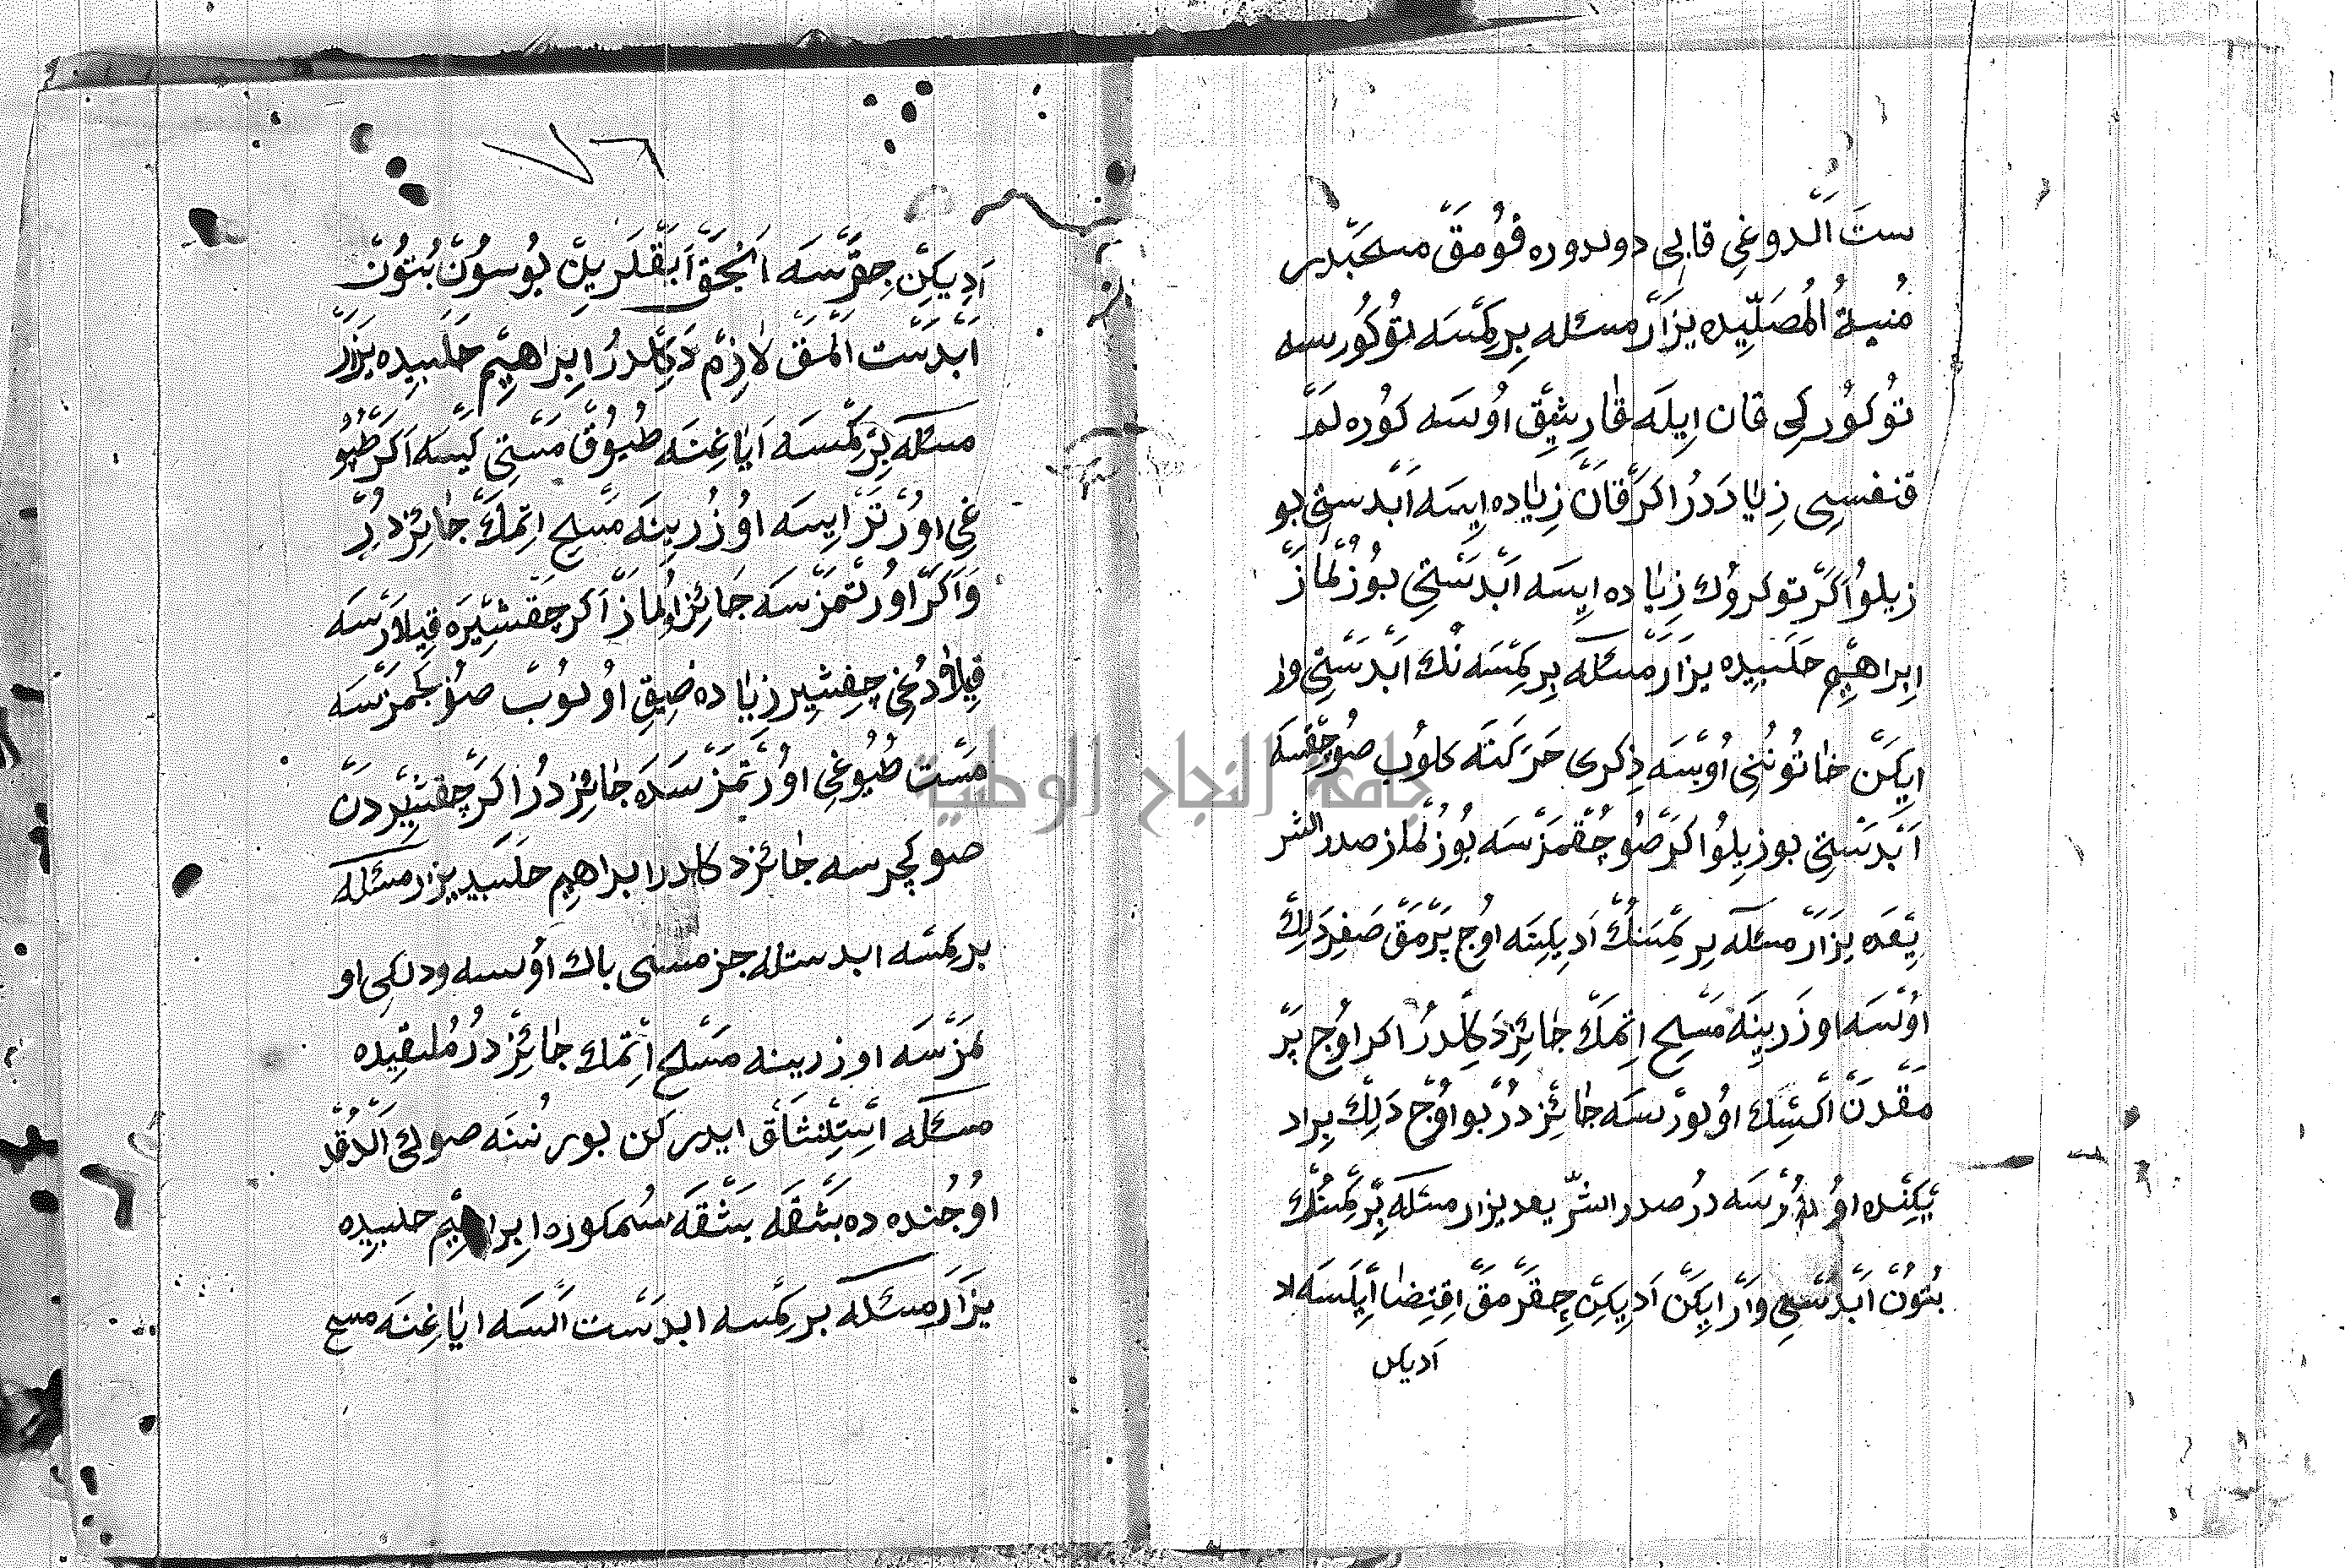 ست الدوغى قابى دولدوره قومق مستحبدر
مُنيةُ المُصَلِّيده يَزَار مسئله بِر كِمْسَه تُوكُورسه
تُوكُورُكى قان اِيلَه قَارِيشِق اُوسَه كوره لَمْ
قنغيسى زِيَادَدُر اكَر قَان زِيَاده اِيسَه اَبْدستى بو
زيلُور اَكَر توكروك زِيَاده ايسَه اَبْدَستِى بوزُلْمَازْ
اِبراهيم حلبيده يَزار مسئله بِر كِمْسَه نُك اَبْدَستِى وار
اِيكَن خَاتُونُنِى اُوپسَه ذِكرى حَرَكَتَه كلُوب صُو چِقْسَه
اَبْدَستِى بوزيلُور اكَر صُو چِقْمَزْسَه بُوزُلْمَاز صدر الشر
يعَه ده يَزَار مسئله بِر كِمسنُك اَدِيكِنَه اوُچ پَرْمَق صَغِر دَلِك
اوُلسَه اوزَرينَه مَسْح اِتمَك جَائِز دَكِلدُر اكر اوُچ پَرْ
مَقْدَن اَكْسِك اوُلورسَه جَائِز دُر بو اوُچ دَلِك بِر اد
يكِنده اوُلورسَه دُر صدر الشريعه يزار مسئله بِر كِمسَنُك
بُتُون اَبْدَستِى وَار اِيكَن اَدِيكِن چِقَرمَق اِقتِضَا اَيلَسَه لا
اَديكن
٧٦
اَدِيكِن چِقَرسَه اَنجَق اَيَقْلَرِين يُوسُون بُتُون
اَبْدَست اَلْمَق لَازِم دَكِلدُر اِبراهيم حَلَبيده يَزَار
مسئله بِر كِمْسَه اَيَاغِنَه طُپُوق مَستِى كَيسَه اَكَر طُپُو
غى اوُرْتَر اِيسَه اوُزُرينَه مَسْح اِتمَك جَائِز دُر
وَاَكَر اوُرتمَزسَه جَائِز اوُلمَاز اَكر چَقشِيرَه قِيلَارسَه
قِيلَادُغِى چقشِير زِيَاده ضِيق اوُلوُب صُو كچمَزسَه
مَست طُپُوغى اوُرتمَزسَدَه جَائِز دُر اكَر چَقشِير دَن
صو كچرسه جائز دكلدر ابراهيم حلبيده يزار مسئله
بر كِمسَه ابدستله جزمسنى پاك اوُلسه ودلكى او
لمَزسَه اوزرينه مَسْح اِتمَك جَائِز دُر مُلتقيده
مسئله اِستِنشَاق ايدركن بورنُنَه صوىى اَلدُقده
اوُچُنده ده بَشقَه بَشقَه سُمكوره اِبراهيم حلبيده
يزَار مسئله بر كِمسه ابدَست اَلسَه ايَاغِنَه مسح
جامعة النجاح الوطنية